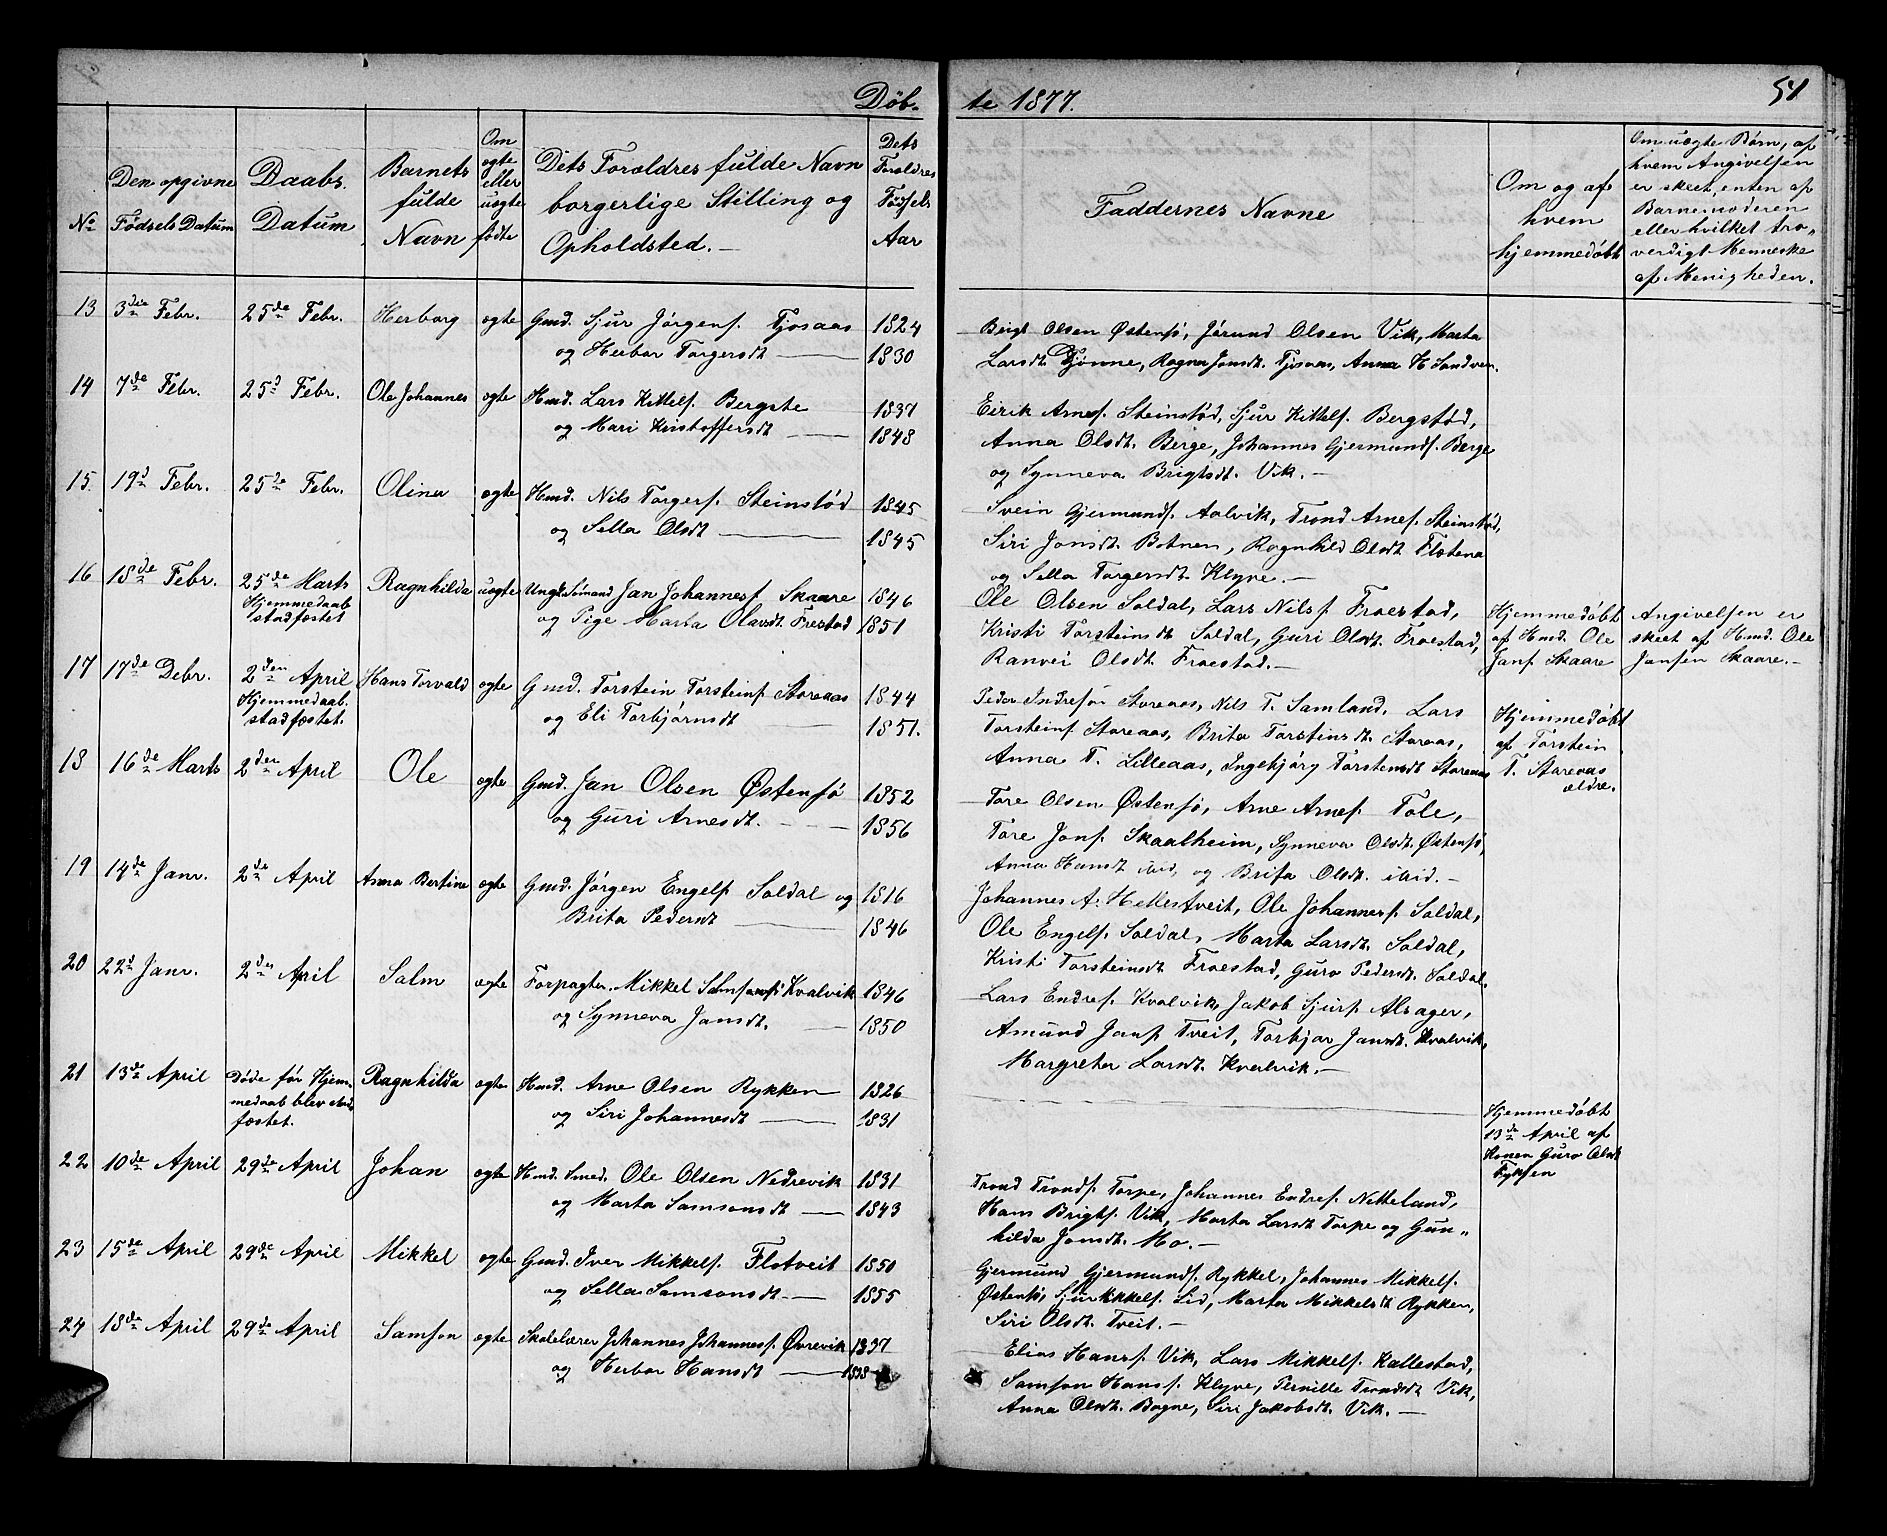 Döb-
te 1877.
54
No
Den opgivne
Fødsels Datum
Daabs.
Datum
Barnets
fulde
Navn
Om
ægte
eller
uægte
fødte
Dets Forældres fulde Navn
borgerlige Stilling og
Opholdsted.—
Dets
Forældres
Fødsels
Aar
Faddernes Navne
Om og af
hvem
hjemmedøbt
Om uægte Børn, af
hvem Angivelsen
er skeet, enten af
Barnemoderen
eller hvilket tro-
verdigt Menneske
af Menigheden.
13 3die Febr. 25de Febr. Herborg ægte Gmd. Sjur Jørgens. Tjosaas 1824
og Herbor Torgersdt — 1830
Brigt Olsen Østensø, Jørund Olsen Vik, Marta
Larsdt. Tjønne, Ragna Jonsdt. Tjosaas, Anna H Sandven.
14 7de Febr. 25d Febr. Ole Johannes ægte Hmd. Lars Kittels. Bergstø 1837
og Mari Kristoffersdt — 1848
Eirik Arnes. Steinstød, Sjur Kittels. Bergstød,
Anna Olsdt. Berge, Johannes Gjermunds. Berge
og Synneva Brigtsdt. Vik.—
15. 19d Febr. 25de Febr. Olina ægte Hmd. Nils Torgers. Steinstød 1845
og Sella Olsdt — 1845
Svein Gjermunds. Aalvik, Trond Arnes. Steinstød,
Siri Jonsdt. Botnen, Ragnhild Olsdt Flotena
og Sella Torgersdt. Klyve.—
16 18de Febr. 25de Marts Ragnhilda uægte Ungk. Sømand Jan Johannes. Skaare 1846
Hjemmedaab
stadfæstet
og Pige Marta Olavsdt. Frøstad 1851
Ole Olsen Soldal, Lars Nils. Froestad,
Kristi Torsteinsdt Soldal, Guri Olsdt. Froestad,
Ranvei Olsdt. Froestad.—
Hjemmedøbt
af Hmd. Ole
Jans. Skaare
Angivelsen er
skeet af Hmd. Ole
Jansen Skaare.—
17 17de Debr. 2den April Hans Torvald ægte Gmd. Torstein Torsteins. Storeaas 1844
Hjemmedaab.
stadfæstet.
og Eli Torbjørnsdt — 1851.
Peder Indresøn Storeaas, Nils T. Samland, Lars
Torsteins. Storeaas, Brita Torsteinsdt. Storaas,
Anna T. Lilleaas, Ingebjørg Torsteinsdt Storeaas
Hjemmedøbt
af Torstein
T. Storeaas
ældre.
18 16de Marts 2den April Ole ægte Gmd. Jan Olsen Østensø 1852
og Guri Arnesdt. — 1856
Tore Olsen Østensø, Arne Arnes. Tole,
Tore Jons. Skaalheim, Synneva Olsdt. Østensø,
Anna Hansdt ibid, og Brita Olsdt. ibid.—
19 14de Janr. 2de April Anna Bertine ægte Gmd. Jørgen Engels. Soldal og 1816
Brita Pedersdt — 1846
Johannes A. Hellestveit, Ole Johannes. Soldal,
Ole Engels. Soldal, Marta Larsdt. Soldal,
Kristi Torsteinsdt Froestad, Guro Pedersdt. Soldal.
20 22d Janr. 2den April Salm ægte Forpagter. Mikkel Samsons. Kvalvik 1846
og Synneva Jansdt. — 1850
Lars Endres. Kvalvik, Jakob Sjurs. Alsager,
Amund Jans. Tveit, Torbjør Jansdt. Kvalvik,
Margreta Larsdt. Kvalvik.—
21 13de April Døde før Hjem- Ragnhilda ægte Hmd. Arne Olsen Rykken 1826
medaab blev stad
fæstet.
og Siri Johannesdt — 1831
Hjemmedøbt
13de April af
Konen Guro Olsdt
Fyksen
22 10de April 29de April Johan ægte Hmd. Smed. Ole Olsen Nedrevik 1831
og Marta Samsonsdt — 1843
Trond Tronds. Torpe, Johannes Endres. Netteland,
Hans Brigts. Vik, Marta Larsdt Torpe og Gun-
hilda Jonsdt. Mo.—
23 15de April 29de April Mikkel ægte Gmd. Iver Mikkels. Flotveit 1850
og Sella Samsonsdt.— 1855
Gjermund Gjermunds. Rykkel, Johannes Mikkels.
Østensø, Sjur Mikkels. Lid, Marta Mikkelsdt Rykken,
Siri Olsdt. Tveit.—
24 18de April 29de April Samson ægte Skolelærer Johannes Johannes. Øvrevik 1837
og Herbor Hansdt — 1838
Elias Hans. Vik, Lars Mikkels. Kallestad,
Samson Hans. Klyve, Pernille Trondsdt Vik,
Anna Olsdt. Bogne, Siri Jakobsdt. Vik.—